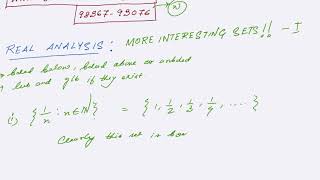 98867-93076
REAL ANALYSIS : MORE INTERESTING SETS!! - I
bdded below, bdded above or unbdd
lub and glb if they exist.
i) { 1/n : n ∈ ℕ } = { 1, 1/2, 1/3, 1/4, .... }
Clearly this set is bou